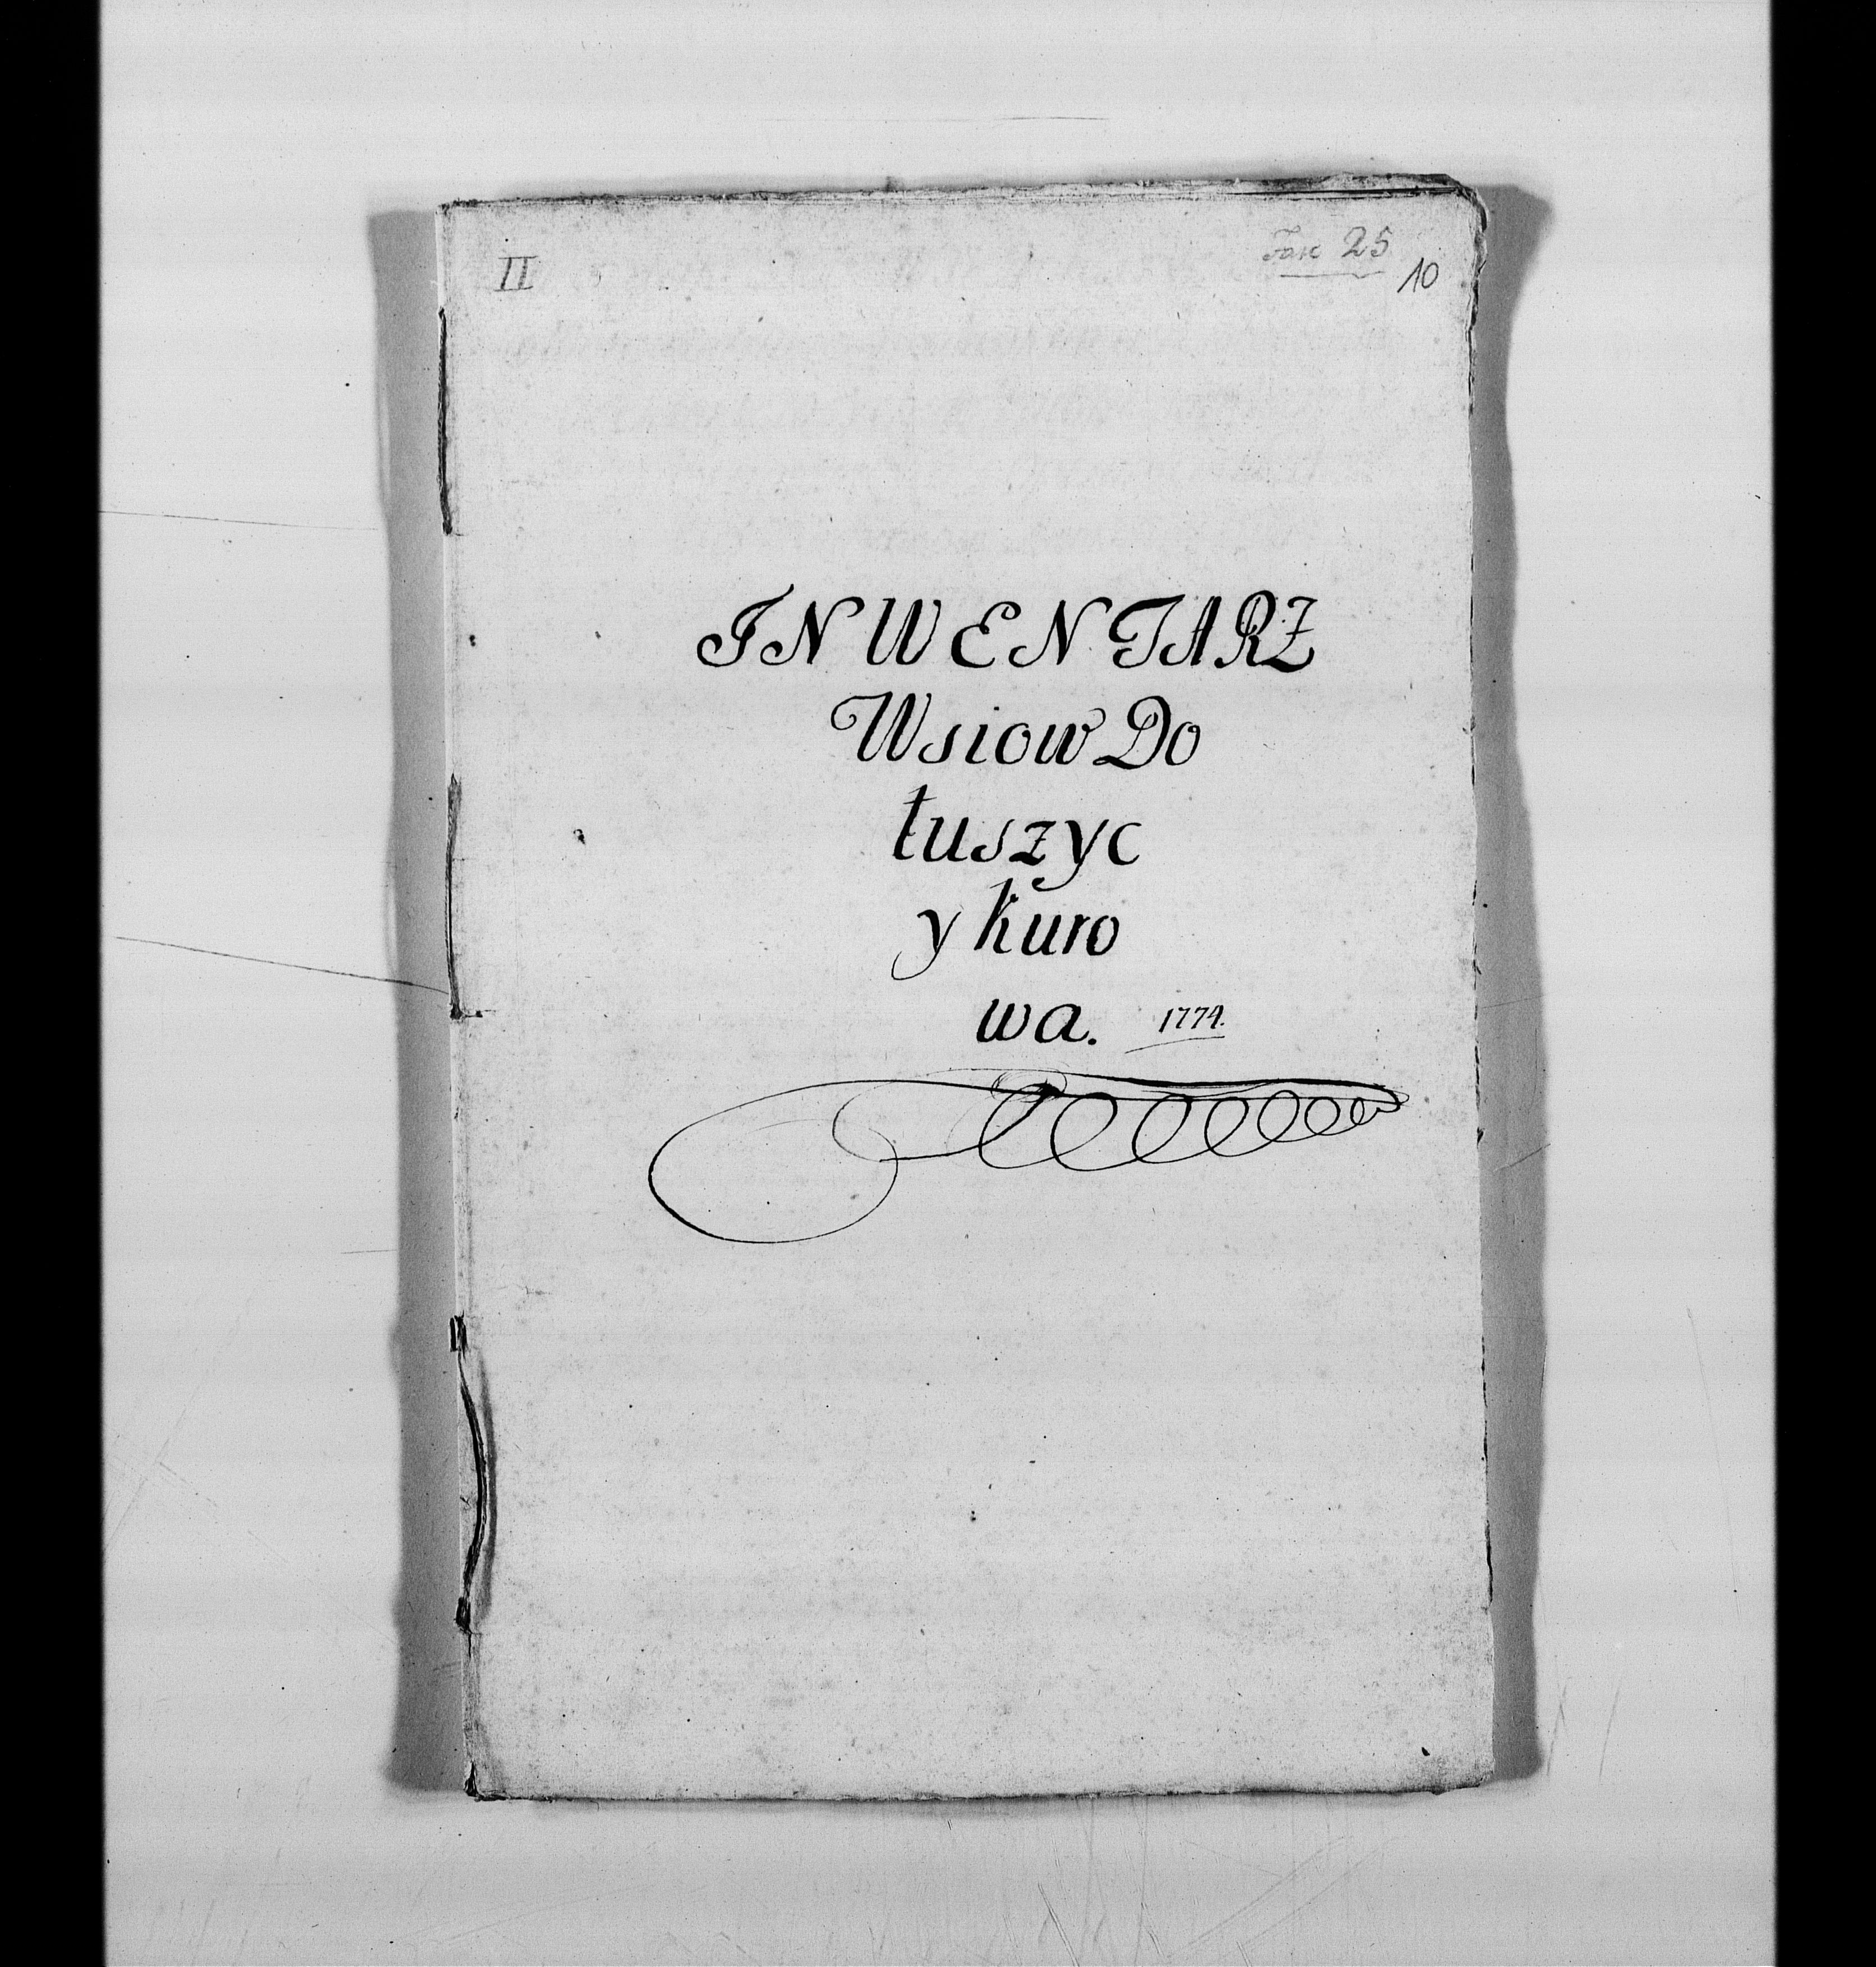 II
Fasc 25
10
INWENTARZ
Wsiow Do
łuszyc
y Kuro
wa. 1774.